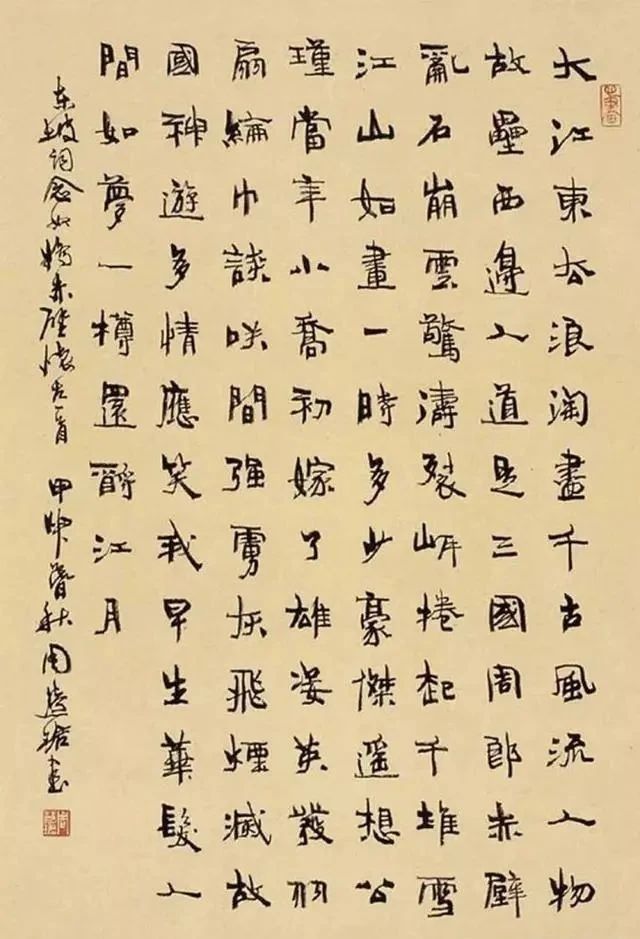 大江東去浪淘盡千古風流人物
故壘西邊人道是三國周郎赤壁
亂石崩雲驚濤裂岸捲起千堆雪
江山如畫一時多少豪傑遙想公
瑾當年小喬初嫁了雄姿英發羽
扇綸巾談咲間强虜灰飛煙滅故
國神遊多情應笑我早生華髮人
間如夢一樽還酹江月
东坡词念奴嬌赤壁懷古一首 甲申暮秋周慧珺书